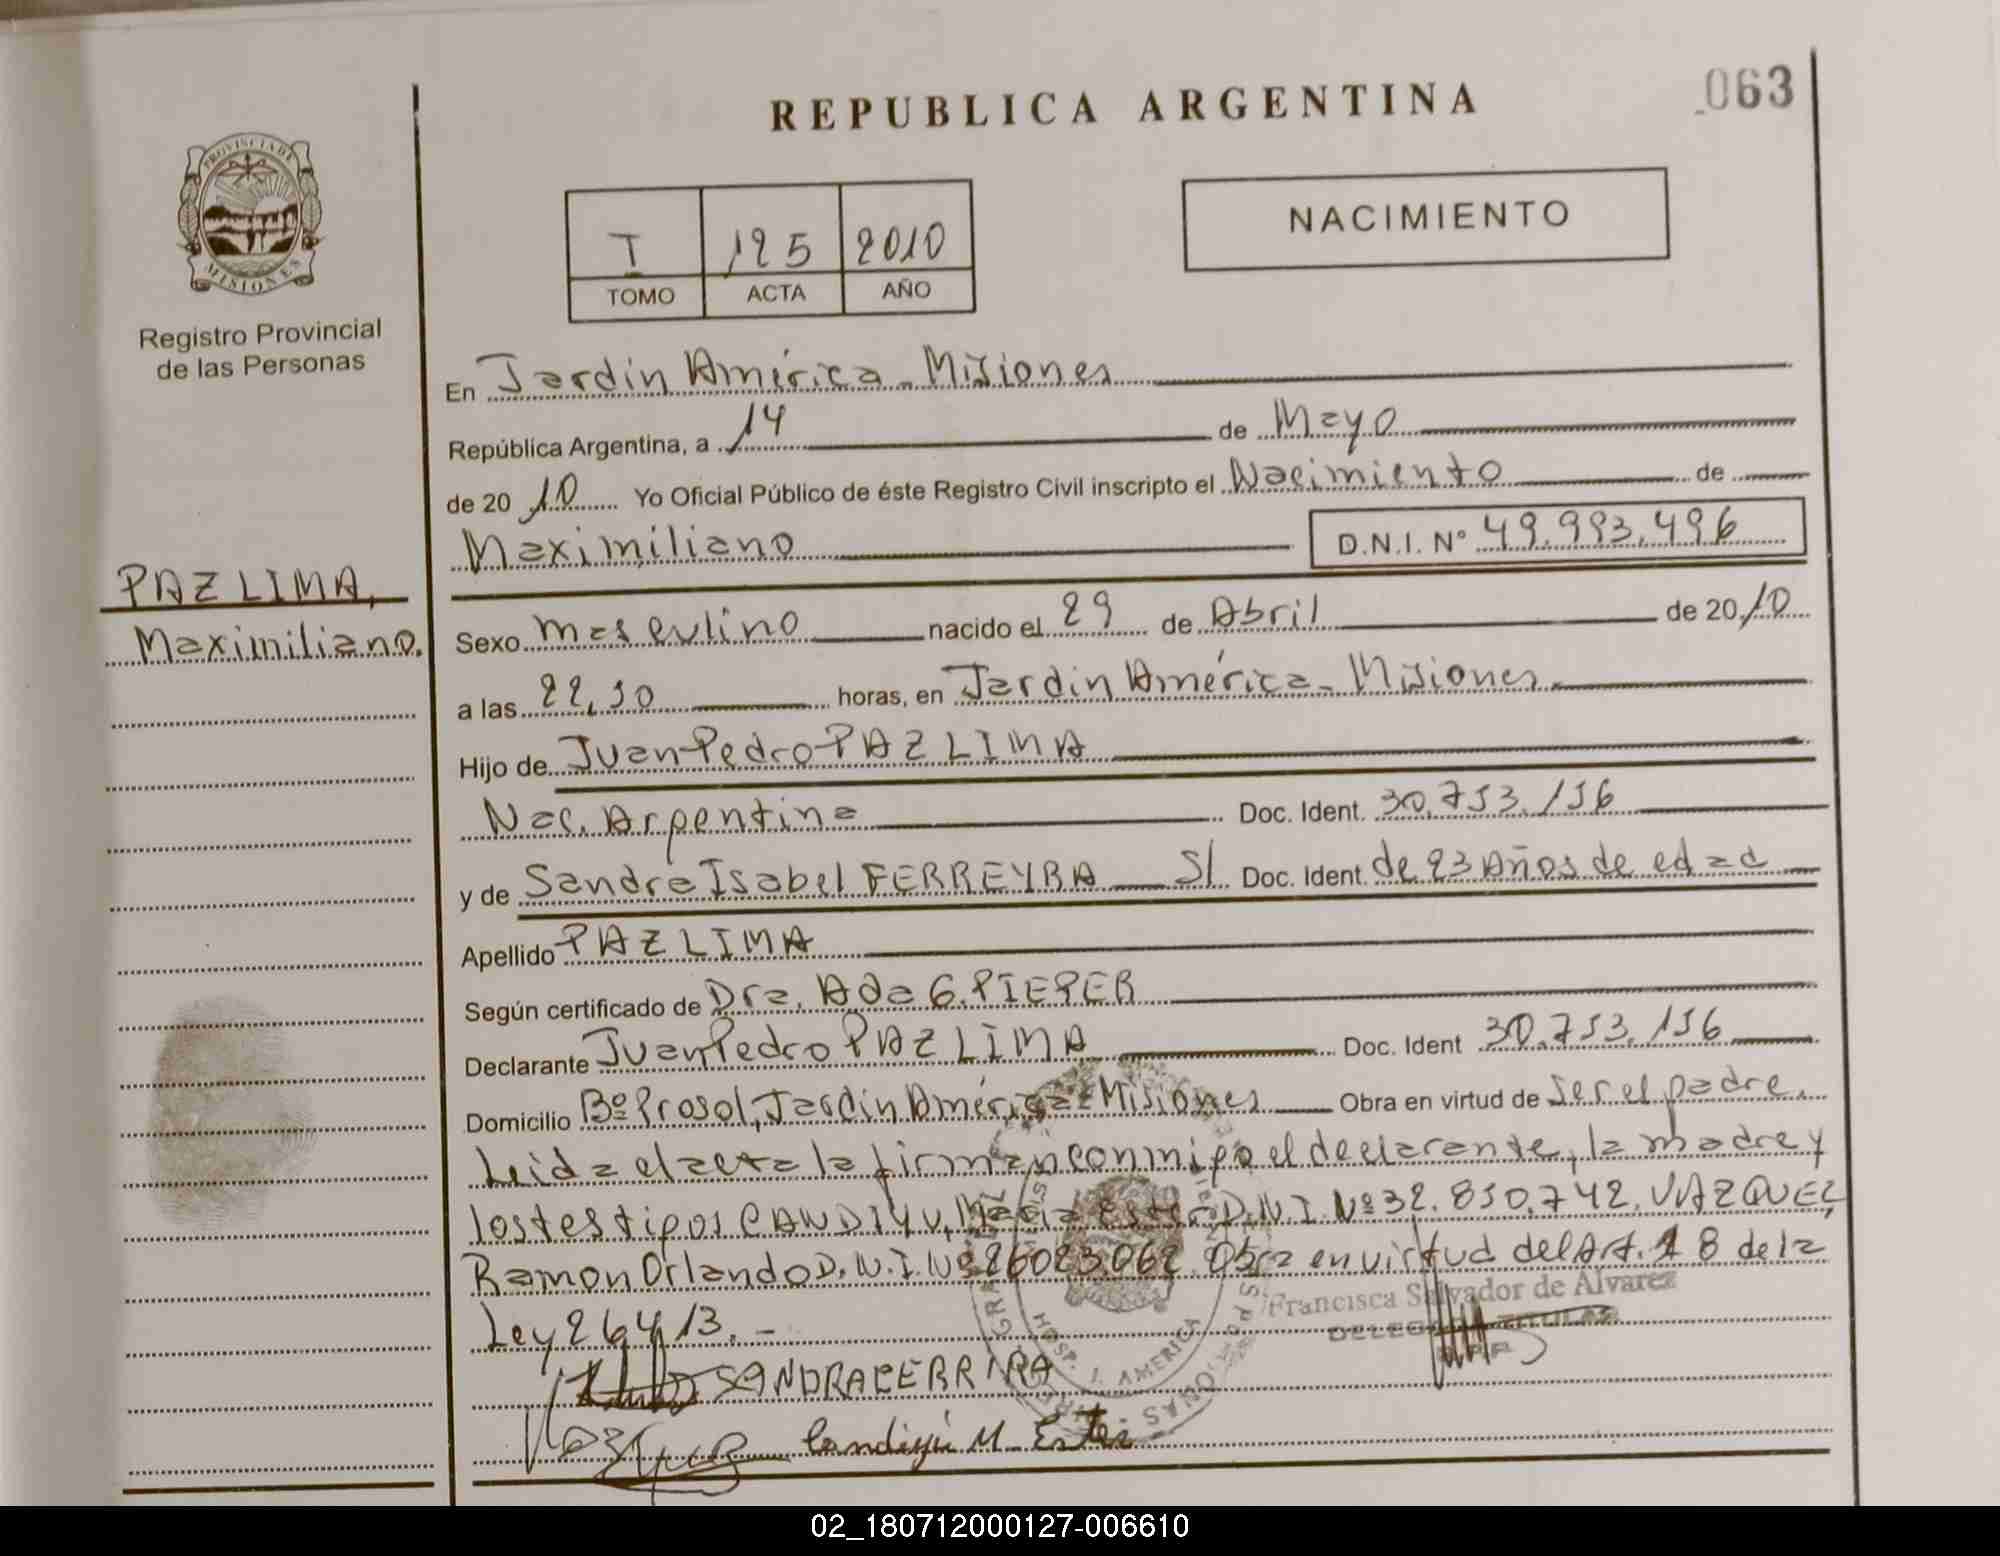 REPUBLICA ARGENTINA
063
PROVINCIA DE
MISIONES
Registro Provincial
de las Personas
I 125 2010
TOMO ACTA AÑO
NACIMIENTO
En Jardín América - Misiones
República Argentina, a 14 de Mayo
de 20 10 Yo Oficial Público de éste Registro Civil inscripto el Nacimiento de
Maximiliano D.N.I. Nº 49.993.496
PAZ LIMA,
Maximiliano.
Sexo masculino nacido el 29 de Abril de 20 10
a las 22,30 horas, en Jardín América - Misiones.
Hijo de Juan Pedro PAZ LIMA
Nac. Argentina Doc. Ident. 30.753.156
y de Sandra Isabel FERREYRA S/ Doc. Ident. de 23 Años de edad
Apellido PAZ LIMA
Según certificado de Dra. Ada G. PIEPER
Declarante Juan Pedro PAZ LIMA Doc. Ident 30.753.156
Domicilio Bº Prosol, Jardín América - Misiones Obra en virtud de ser el padre.
Leida el acta la firman conmigo el declarante, la madre y
los testigos CANDIYU, María Ester D.N.I. Nº 32.850.742, VAZQUEZ,
Ramon Orlando D.N.I. Nº 26023.062 Obra en virtud del Art. 18 de la
Ley 26413. -
Francisca Salvador de Alvarez
DELEGADA TITULAR
R.P.P.
SANDRA FERRIRA
Candiyú M. Ester
HOSP. J. AMERICA
02_180712000127-006610